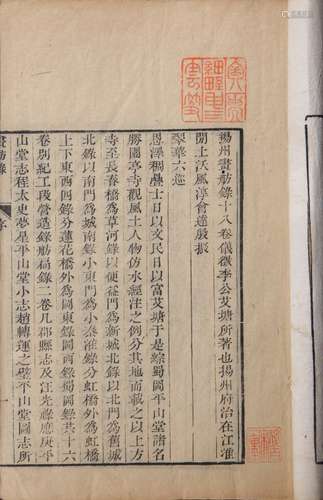 揚州畫舫錄十八卷儀徵李公艾塘所著也揚州府治在江淮
間土沃風淳會達殷振
翠華六巡
恩澤稠疊士日以文民日以富艾塘于是綜蜀岡平山堂諸名
勝園亭寺觀風土人物仿水經注之例分其地而載之以上方
寺至長春橋為草河錄以便益門為新城北錄以北門為舊城
北錄以南門為城南錄小東門為小秦淮錄分虹橋外為虹橋
上下東西四錄分蓮花橋外為岡東錄岡西錄蜀岡錄共十六
卷別紀工段營造錄舫扁錄二卷凡郡縣志及汪光祿應庚平
山堂志程太史夢星平山堂小志趙轉運之璧平山堂圖志所
畫舫錄 序